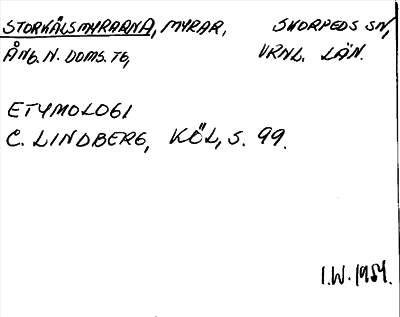 STORKÅLSMYRARNA, MYRAR, SKORPEDS SN,
ÅNG. N. DOMS. TG, VRNL. LÄN.
ETYMOLOGI
C. LINDBERG, KÖL, S. 99.
I.W. 1954.